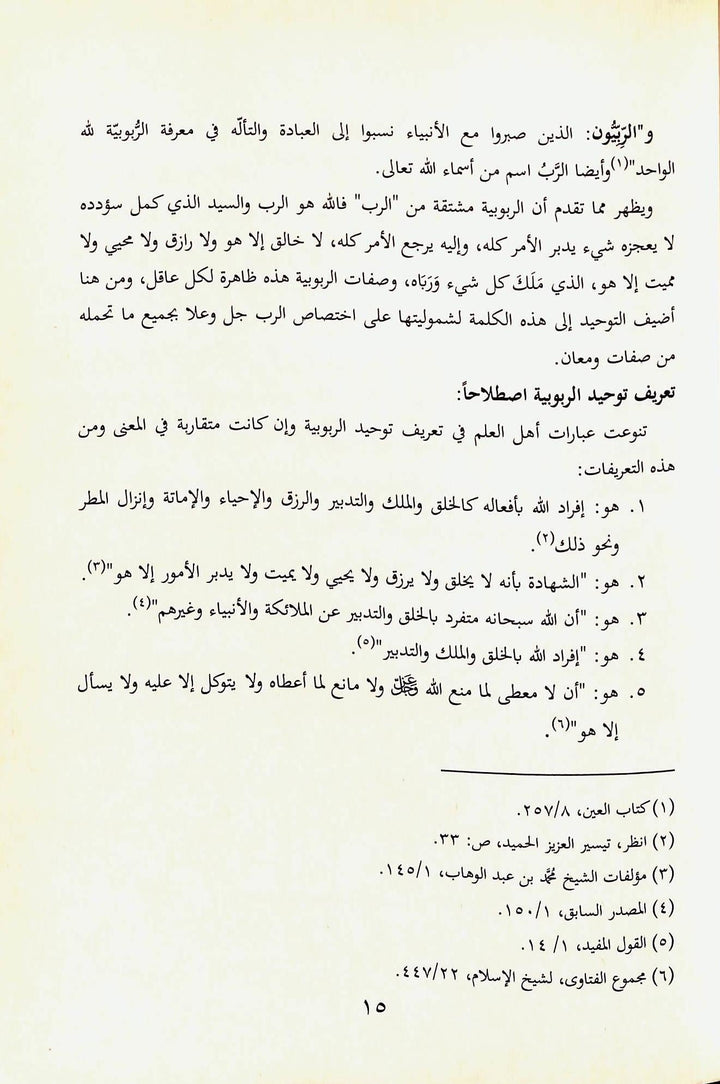 و"الرِّبِيُّون: الذين صبروا مع الأنبياء نسبوا إلى العبادة والتألّه في معرفة الرُّبوبيّة لله
الواحد"(١)وأيضا الرَّبُ اسم من أسماء الله تعالى.
ويظهر مما تقدم أن الربوبية مشتقة من "الرب" فالله هو الرب والسيد الذي كمل سؤدده
لا يعجزه شيء يدبر الأمر كله، وإليه يرجع الأمر كله، لا خالق إلا هو ولا رازق ولا محيي ولا
مميت إلا هو، الذي مَلَكَ كل شيء وَرَبَاه، وصفات الربوبية هذه ظاهرة لكل عاقل، ومن هنا
أضيف التوحيد إلى هذه الكلمة لشموليتها على اختصاص الرب جل وعلا بجميع ما تحمله
من صفات ومعان.
تعريف توحيد الربوبية اصطلاحاً:
تنوعت عبارات أهل العلم في تعريف توحيد الربوبية وإن كانت متقاربة في المعنى ومن
هذه التعريفات:
١. هو: إفراد الله بأفعاله كالخلق والملك والتدبير والرزق والإحياء والإماتة وإنزال المطر
ونحو ذلك(٢).
٢. هو: "الشهادة بأنه لا يخلق ولا يرزق ولا يحيي ولا يميت ولا يدبر الأمور إلا هو"(٣).
٣. هو: "أن الله سبحانه متفرد بالخلق والتدبير عن الملائكة والأنبياء وغيرهم"(٤).
٤. هو: "إفراد الله بالخلق والملك والتدبير"(٥).
٥. هو: "أن لا معطى لما منع الله ﷿ ولا مانع لما أعطاه ولا يتوكل إلا عليه ولا يسأل
إلا هو"(٦).
(١) كتاب العين، ٢٥٧/٨.
(٢) انظر، تيسير العزيز الحميد، ص: ٣٣.
(٣) مؤلفات الشيخ محمَّد بن عبد الوهاب، ١٤٥/١.
(٤) المصدر السابق، ١٥٠/١.
(٥) القول المفيد، ١/ ١٤.
(٦) مجموع الفتاوى، لشيخ الإسلام، ٤٤٧/٢٢.
١٥